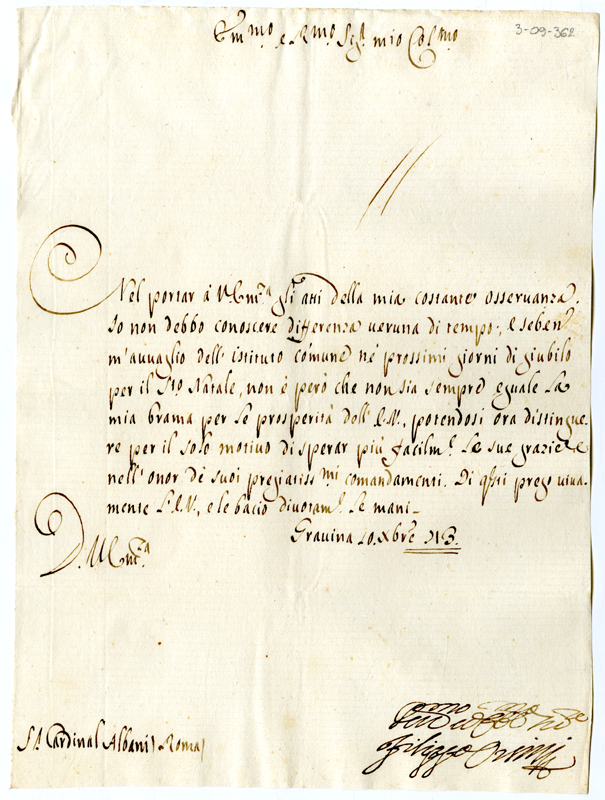 3-09-362
Em̃mo e Rmo Sigr mio Colmo
Nel portar à V. Em.za gli atti della mia costante osservanza,
Io non debbo conoscere differenza veruna di tempo; e seben
m'avvaglio dell'istituto comune né prossimi giorni di giubilo
per il Sto Natale, non è però che non sia sempre eguale la
mia brama per le prosperità dell'E.V., potendosi ora distingue-
re per il solo motivo di sperar più facilm.e le sue grazie
nell'onor dè suoi pregiatiss.mi comandamenti. Di q̃sti prego viva-
mente L'E.V., e le bacio divotam.e le mani_
Gravina 20 Xbre 713.
D. V. Em.za
Sr Cardinal Albani Roma
Filippo Orsini